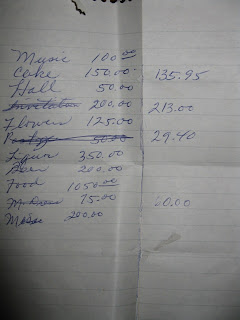 Music 100.00
Cake 150.00 135.95
Hall 50.00
Invitation 200.00 213.00
Flowers 125.00
50.00 29.40
Liquor 350.00
Beer 200.00
Food 1050.00
75.00 60.00
200.00